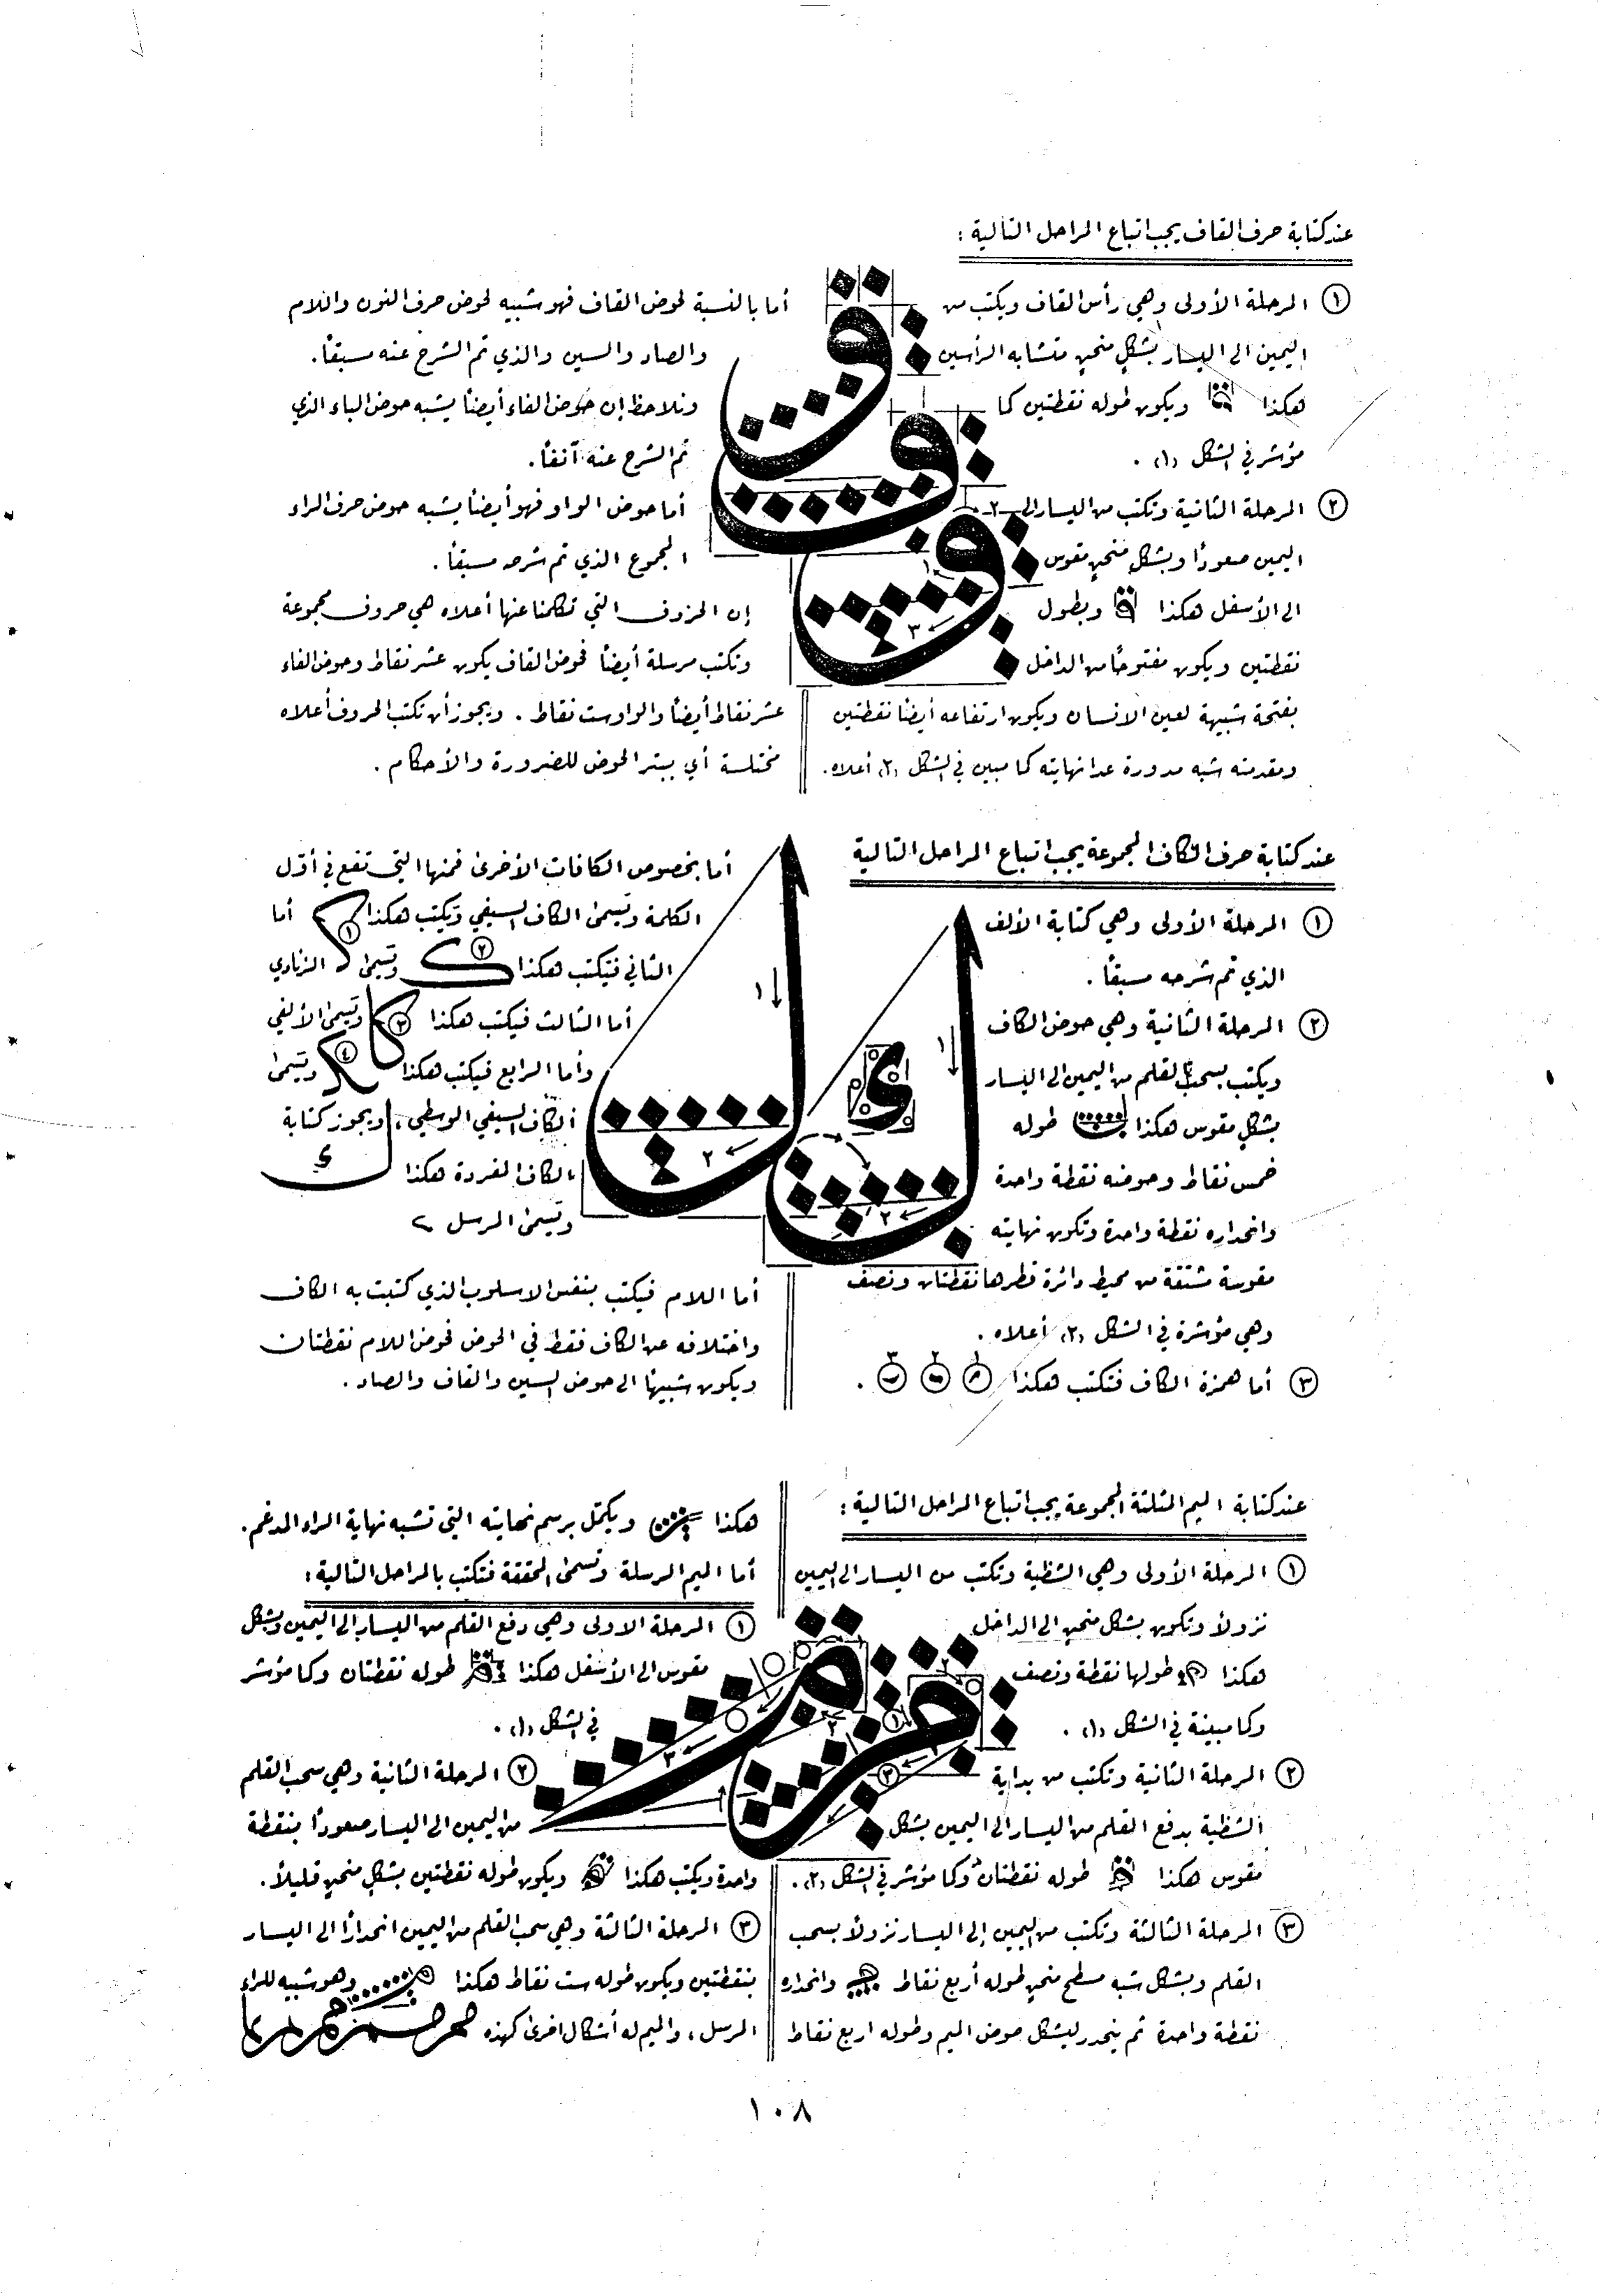 عند كتابة حرف القاف يجب اتباع المراحل التالية :
١ المرحلة الأولى وهي رأس القاف ويكتب من
اليمين الى اليسار بشكلٍ منحنٍ متشابه الرأسين
هكذا ويكون طوله نقطتين كما
مؤشر في الشكل (١) .
٢ المرحلة الثانية وتكتب من اليسار الى
اليمين صعوداً وبشكلٍ منحنٍ مقوس
الى الأسفل هكذا وبطول
نقطتين ويكون مفتوحاً من الداخل
بفتحة شبيهة لعين الانسان ويكون ارتفاعه أيضاً نقطتين
ومقدمته شبه مدورة عدا نهايته كما مبين في الشكل (٢) أعلاه .
أما بالنسبة لحوض القاف فهو شبيه لحوض حرف النون واللام
والصاد والسين والذي تم الشرح عنه مسبقاً .
ونلاحظ إن حوض الفاء أيضاً يشبه حوض الباء الذي
تم الشرح عنه آنفاً .
أما حوض الواو فهو أيضاً يشبه حوض حرف الراء
المجموع الذي تم شرحه مسبقاً .
إن الحروف التي تكلمنا عنها أعلاه هي حروف مجموعة
وتكتب مرسلة أيضاً فحوض القاف يكون عشر نقاط وحوض الفاء
عشر نقاط أيضاً والواو ست نقاط . ويجوز أن تكتب الحروف أعلاه
مختلسة أي ببتر الحوض للضرورة والأحكام .
عند كتابة حرف الكاف المجموعة يجب اتباع المراحل التالية
١ المرحلة الأولى وهي كتابة الألف
الذي تم شرحه مسبقاً .
٢ المرحلة الثانية وهي حوض الكاف
ويكتب بسحب القلم من اليمين الى اليسار
بشكلٍ مقوس هكذا طوله
خمس نقاط وحوضه نقطة واحدة
وانحداره نقطة واحدة وتكون نهايته
مقوسة مشتقة من محيط دائرة قطرها نقطتان ونصف
وهي مؤشرة في الشكل (٢) أعلاه .
٣ أما همزة الكاف فتكتب هكذا ١ ٢ ٣ .
أما بخصوص الكافات الأخرى فمنها التي تقع في أوّل
الكلمة وتسمى الكاف السيفي وتكتب هكذا ١ أما
الثاني فتكتب هكذا ٢ وتسمى الزنادي
أما الثالث فيكتب هكذا ٣ وتسمى الألفي
وأما الرابع فيكتب هكذا ٤ وتسمى
الكاف السيفي الوسطي ، ويجوز كتابة
الكاف المفردة هكذا
وتسمى المرسل
أما اللام فيكتب بنفس الاسلوب الذي كتبت به الكاف
واختلافه عن الكاف فقط في الحوض فحوض اللام نقطتان
ويكون شبيهاً الى حوض السين والقاف والصاد .
عند كتابة الميم المثلثة المجموعة يجب اتباع المراحل التالية :
١ المرحلة الأولى وهي الشظية وتكتب من اليسار الى اليمين
نزولاً وتكون بشكل منحنٍ الى الداخل
هكذا طولها نقطة ونصف
وكما مبينة في الشكل (١) .
٢ المرحلة الثانية وتكتب من بداية
الشظية بدفع القلم من اليسار الى اليمين بشكل
مقوس هكذا طوله نقطتان وكما مؤشر في الشكل (٢) .
٣ المرحلة الثالثة وتكتب من اليمين إلى اليسار نزولاً بسحب
القلم وبشكل شبه مسطح منحنٍ طوله أربع نقاط وانحداره
نقطة واحدة ثم ينحدر ليشكل حوض الميم وطوله اربع نقاط
هكذا ويكمّل برسم نهايته التي تشبه نهاية الراء المدغم .
أما الميم المرسلة وتسمى المحققة فتكتب بالمراحل التالية :
١ المرحلة الاولى وهي دفع القلم من اليسار إلى اليمين وبشكل
مقوس الى الأسفل هكذا طوله نقطتان وكما مؤشر
في الشكل (١) .
٢ المرحلة الثانية وهي سحب القلم
من اليمين الى اليسار صعوداً بنقطة
واحدة ويكتب هكذا ويكون طوله نقطتين بشكلٍ منحنٍ قليلاً .
٣ المرحلة الثالثة وهي سحب القلم من اليمين انحداراً الى اليسار
بنقطتين ويكون طوله ست نقاط هكذا وهو شبيه للراء
المرسل ، والميم له أشكال اخرى كهذه
١٠٨